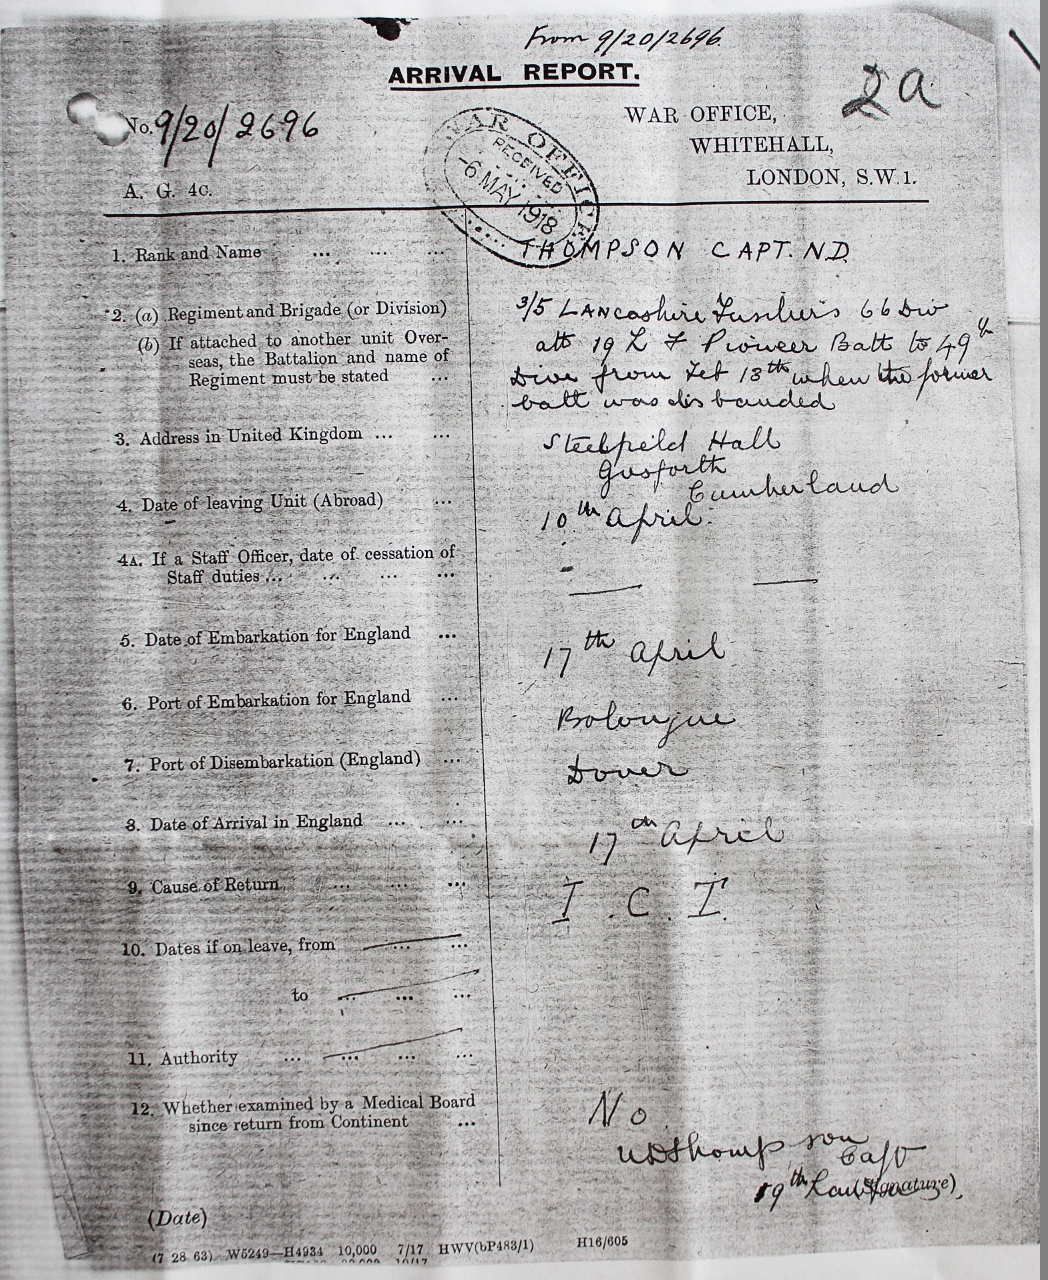 From 9/20/2696.
ARRIVAL REPORT.
2a
No. 9/20/2696
WAR OFFICE,
WHITEHALL,
LONDON, S.W.1.
A. G. 4c.
WAR OFFICE
RECEIVED
-6 MAY 1918
1. Rank and Name ... ... ... THOMPSON CAPT. N D.
2. (a) Regiment and Brigade (or Division) 3/5 Lancashire Fusiliers 66 Div
(b) If attached to another unit Over- att 19 L F Pioneer Batt to 49th
seas, the Battalion and name of Divn from Feb 13th when the former
Regiment must be stated ... batt was disbanded
3. Address in United Kingdom ... ... Steelfield Hall
Gosforth
Cumberland
4. Date of leaving Unit (Abroad) ... 10th April.
4A. If a Staff Officer, date of cessation of
Staff duties ... ... ... ... — —
5. Date of Embarkation for England ... 17th April
6. Port of Embarkation for England ... Bolougne
7. Port of Disembarkation (England) ... Dover
8. Date of Arrival in England ... ... 17th April
9. Cause of Return ... ... ... I. C. T.
10. Dates if on leave, from ... ...
to ... ... ...
11. Authority ... ... ... ...
12. Whether examined by a Medical Board No
since return from Continent ...
NDThompson
Capt
19th Lan Fus (Signature)
(Date)
(7 28 63) W5249—H4934 10,000 7/17 HWV(bP483/1) H16/605
10/17